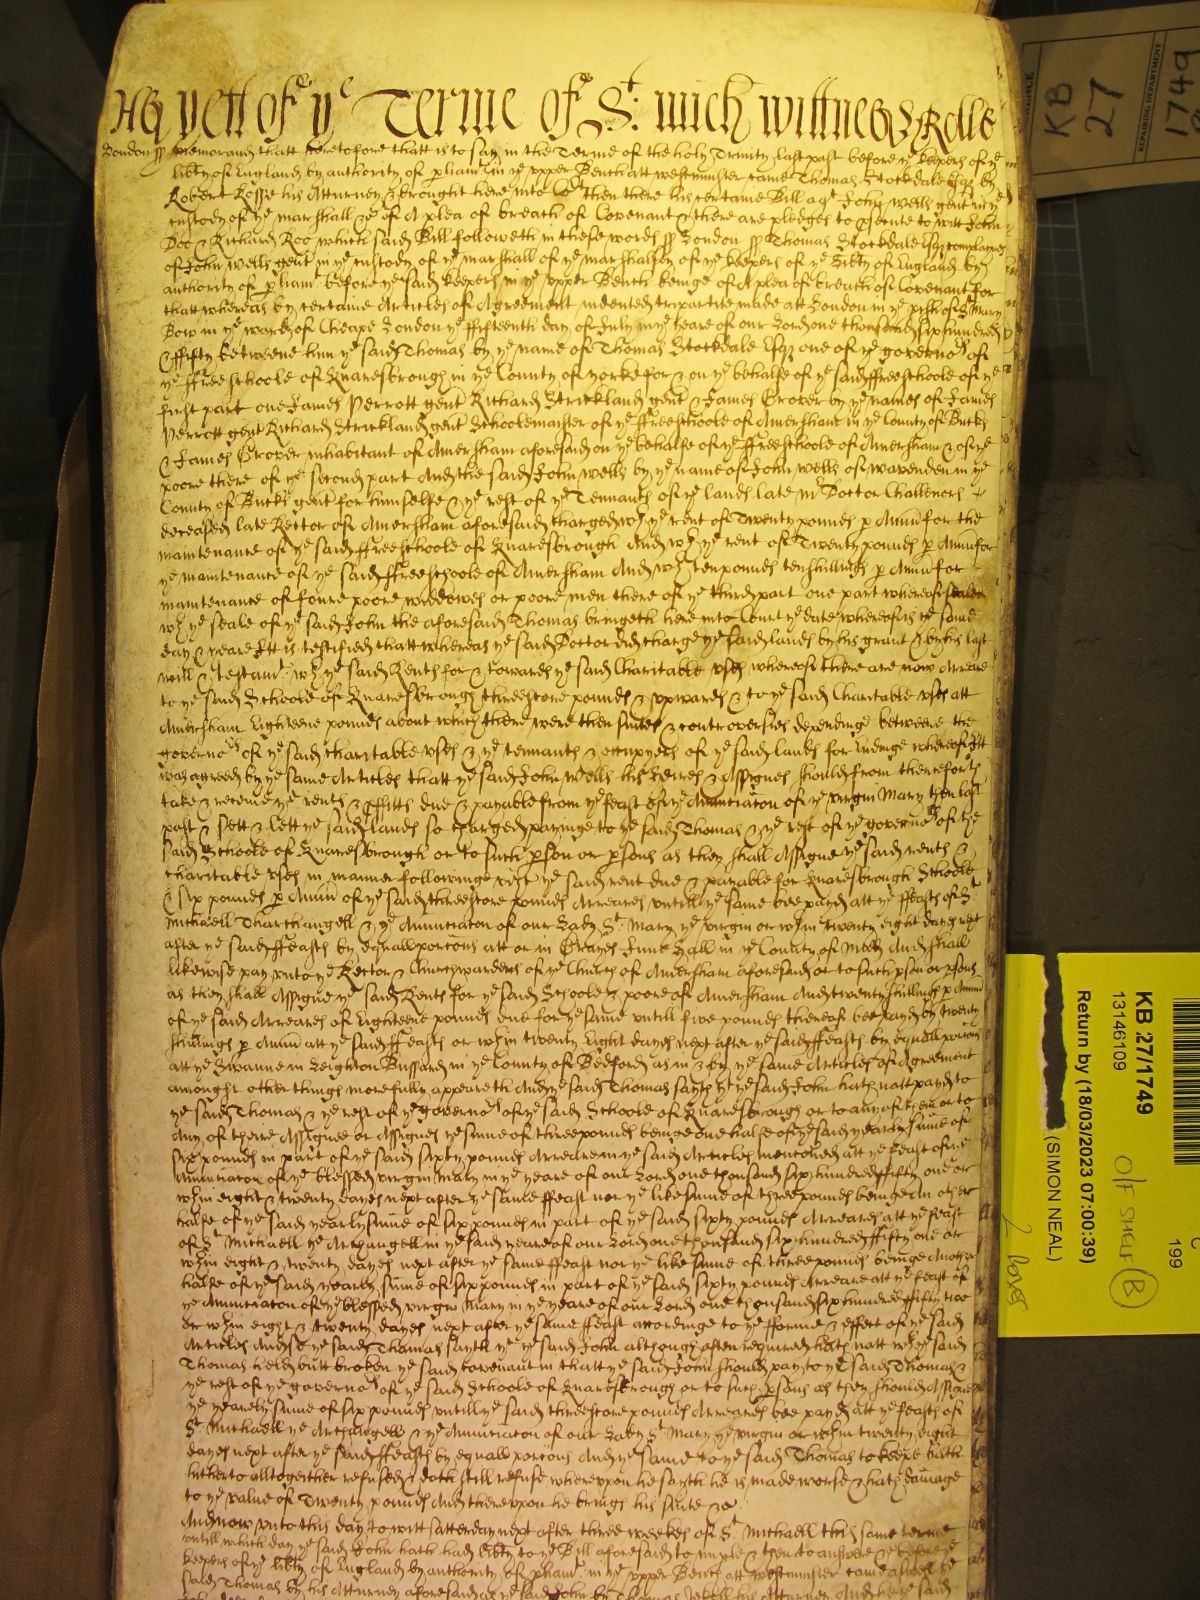 As yett of ye Terme of St: Mich wittnes Rolle
London ss Memorand thatt heretofore thatt is to say in the Terme of the holy Trinity last past before ye keepers of ye
lib'ty of England by authority of p'liam't in ye upper Bench att westminster came Thomas Stockdale Esqr by
Robert Rosse his Atturney & brought here into Co't then there his certaine Bill agt John wells gent in ye
custody of ye marshall &c of A plea of breach of Covenant & there are pledges to p'secute to witt John
Doe & Richard Roo which said Bill followeth in these words ss London ss Thomas Stockdale Esqr complaines
of John wells gent in ye custody of ye marshall of ye marshalsey of ye keepers of ye lib'ty of England by
authority of p'liam't before ye said keepers in ye upper Bench beinge of A plea of breach of Covenant for
thatt whereas by certaine Articles of Agreement indented tripartite made att London in ye p'ish of St Mary
Bow in ye ward of Cheape London ye fifteenth day of July in ye yeare of our Lord one thousand six hundred
& ffifty betweene him ye said Thomas by ye name of Thomas Stockdale Esqr one of ye governors of
ye ffree schoole of Knaresbrough in ye County of Yorke for & on ye behalfe of ye said ffree schoole of ye
first part one James Perrott gent Richard Strickland gent & James Grover by ye names of James
Perrott gent Richard Strickland gent Schoolemaister of ye ffreeschoole of Amersham in ye County of Bucks
& James Grover inhabitant of Amersham aforesaid on ye behalfe of ye ffreeschoole of Amersham & of ye
poore there of ye second part And the said John wells by ye name of John wells of wavenden in ye
County of Bucks gent for himselfe & ye rest of ye Tennants of ye lands late mr Doctor Challenors
deceased late Rector of Amersham aforesaid charged wth ye rent of Twenty pounds p Annu for the
maintenance of ye said ffreeschoole of Knaresbrough And wth ye rent of Twenty pounds p Annu for
ye maintenance of ye said ffreeschoole of Amersham And wth ten pounds ten shillings p Annu for
maintenance of foure poore widdowes or poore men there of ye third part one part whereof sealed
wth ye seale of ye said John the aforesaid Thomas bringeth here into Court ye date whereof is ye same
day & yeare Itt is testified thatt whereas ye said Doctor did charge ye said lands by his grant & by his last
will & testamt wth ye said Rents for & towards ye said Charitable uses whereof there are now Arreare
to ye said Schoole of Knaresbrough threescore pounds & upwards & to ye said Charitable uses att
Amersham Eighteene pounds about which there were then suites & controversies dependinge betweene the
governors of ye said charitable uses & ye tennants & occupyers of ye said lands for endinge whereof Itt
was agreed by ye same Articles thatt ye said John Wells his heires & Assignes should from thenceforth
take & receive ye rents & p'ffitts due & payable from ye feast of ye Anunciacon of ye virgin Mary then last
past & sett & lett ye said lands so charged payinge to ye said Thomas & ye rest of ye governors of the
said Schoole of Knaresbrough or to such p'son or p'sons as they shall Assigne ye said rents &
charitable uses in manner followinge vizt ye said rent due & payable for Knaresbrough Schoole
& six pounds p Annu of ye said threescore pounds Arreares untill ye same bee payd att ye ffeasts of St
Michaell Tharchangell & ye Anunciacon of our Lady St Mary ye virgin or wthin twenty eight dayes next
after ye said ffeasts by equall porcons att or in Grayes Inne Hall in ye County of Midd And shall
likewise pay unto ye Rector & Churchwardens of ye Church of Amersham aforesaid or to such p'son or p'sons
as they shall Assigne ye said Rents for ye said Schoole & poore of Amersham And twenty shillings p Annu
of ye said Arreares of Eighteene pounds due for ye same untill five pounds thereof bee payd by twenty
shillings p Annu att ye said ffeasts or wthin twenty Eight dayes next after ye said ffeasts by equall porcons
att ye Swanne in Leighton Bussard in ye County of Bedford as in & by ye same Articles of Agreement
amongst other things more fully appeareth And ye said Thomas sayth yt ye said John hath natt payd to
ye said Thomas & ye rest of ye governors of ye said Schoole of Knaresbrough or to any of them or to
Any of theire Assignee or Assignes ye sume of three pounds beinge one halfe of ye said yearly sume of
six pounds in part of ye said sixty pounds Arreare in ye said Articles mencoed att ye ffeast of ye
Anunciacon of ye blessed virgin Mary in ye yeare of our Lord one thousand six hundred ffifty one or
wthin eight & twenty dayes next after ye same ffeast nor ye like sume of three pounds beinge An other
halfe of ye said yearly sume of six pounds in part of ye said sixty pounds Arreares att ye ffeast
of St Michaell ye Archangell in ye said yeare of our Lord one thousand six hundred ffifty one or
wthin eight & twenty dayes next after ye same ffeast nor ye like sume of three pounds beinge Another
halfe of ye said yearly sume of six pounds in part of ye said sixty pounds Arreare att ye ffeast of
ye Anunciacon of ye blessed virgin Mary in ye yeare of our Lord one thousand six hundred ffifty two
or wthin eight & twenty dayes next after ye same ffeast accordinge to ye fforme & effect of ye said
Articles And so ye said Thomas sayth yt ye said John although often required hath natt wth ye said
Thomas held butt broken ye said covenant in thatt ye said John should pay to ye said Thomas &
ye rest of ye governors of ye said Schoole of Knaresbrough or to such p'sons as they should Assigne
ye yearely sume of six pounds untill ye said threescore pounds Arreares bee payd att ye ffeasts of
St Michaell ye Archangell & ye Anunciacon of our Lady St Mary ye virgin or wthin twenty eight
dayes next after ye said ffeasts by equall porcons And ye same to ye said Thomas to keepe hath
hitherto altogeither refused & doth still refuse whereupon he sayth he is made worse & hath damage
to ye value of Twenty pounds And thereupon he brings his suite &c
And now unto this day to witt satterday next after three weekes of St Michaell this same terme
untill which day ye said John hath had lib'ty to ye Bill aforesaid to imple & then to answere &c before ye
keepers of ye lib'ty of England by authority of p'liamt in ye upper Bench att westminster came aswell ye
said Thomas by his Atturney aforesaid as ye said John by Thomas Atturney And ye said
KB
27
1749
REPAIRING DEPARTMENT
KB 27/1749
13146109
Return by (18/03/2023 07:00:39)
(SIMON NEAL)
O/F SHELF B
2 boxes
199
C